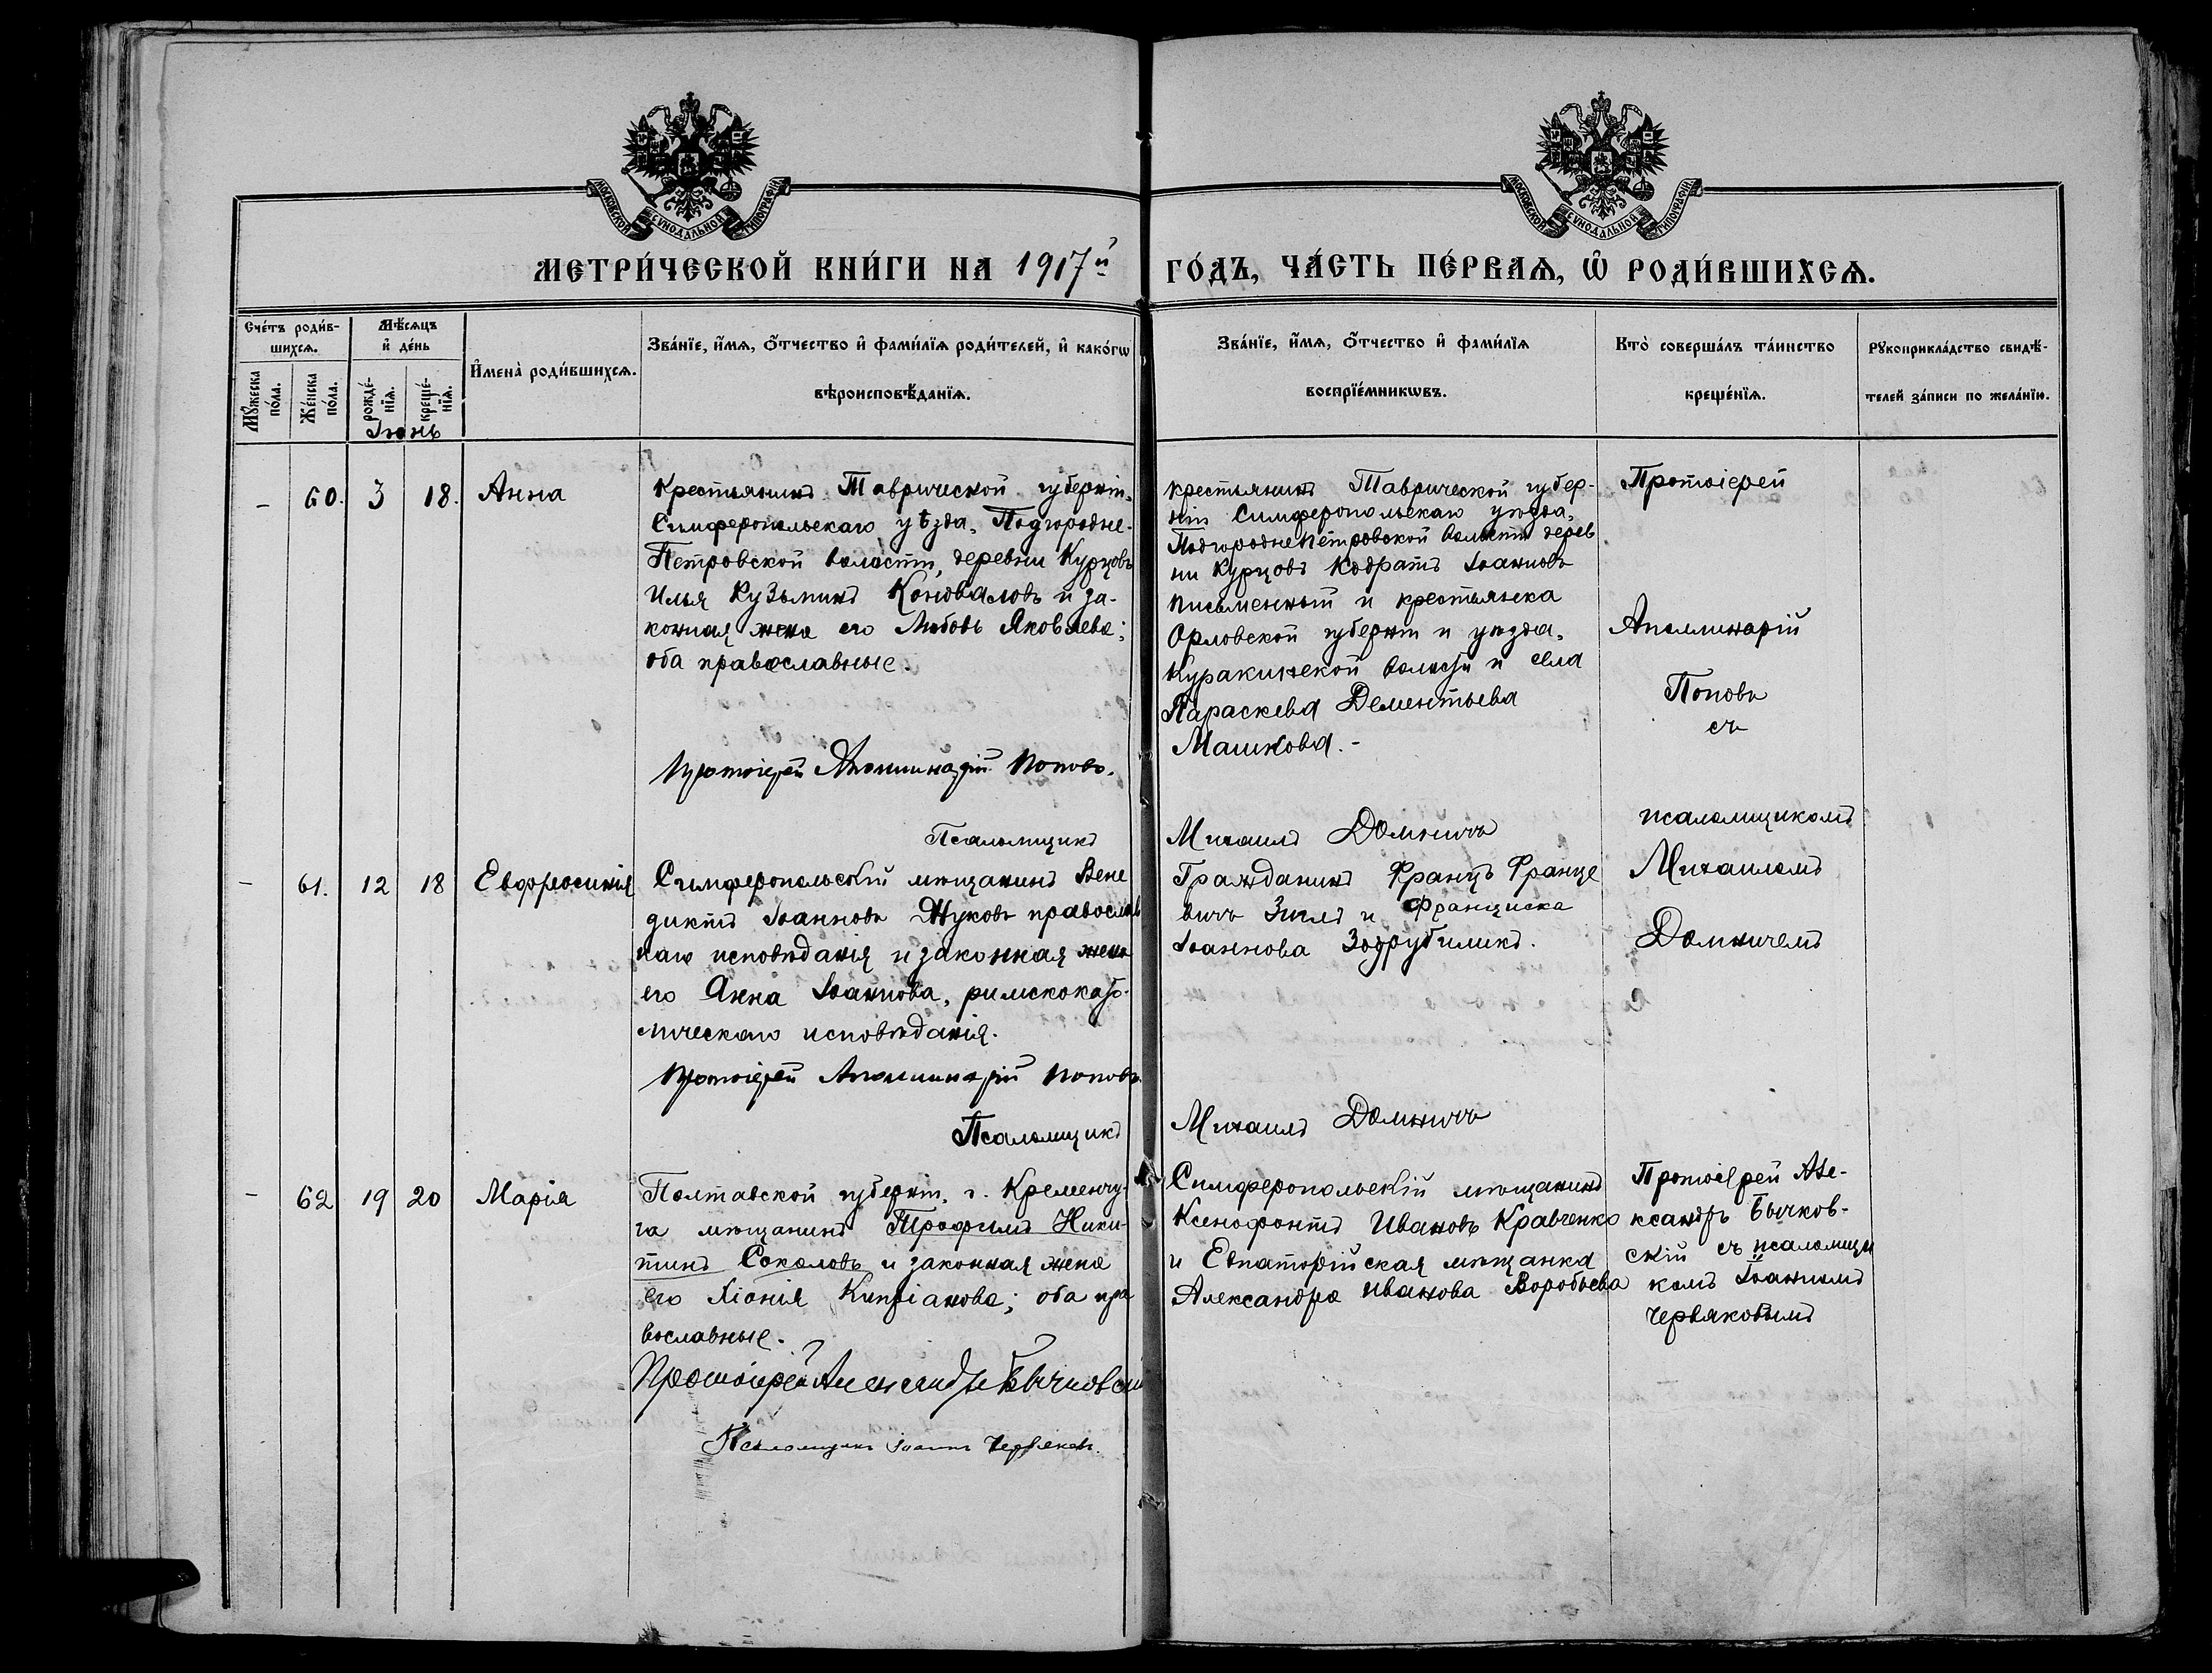 МОСКОВСКОЙ СѴНОДАЛЬНОЙ ТИПОГРАФІИ
МОСКОВСКОЙ СѴНОДАЛЬНОЙ ТИПОГРАФІИ
МЕТРИ́ЧЕСКОЙ КНИ́ГИ НА 1917й ГО́ДЪ, ЧА́СТЬ ПЕ́РВАѦ, Ѽ РОДИ́ВШИХСѦ.
Сче́тъ роди́в-
шихсѧ.
Мꙋ́жеска
по́ла.
Же́нска
по́ла.
Мѣ́сѧцъ
и҆ де́нь
рожде́-
нїѧ.
креще́-
нїѧ.
Іюнь
И҆мена̀ роди́вшихсѧ.
Зва́нїе, и҆́мѧ, ѻ҆́тчество и҆ фами́лїѧ роди́телей, и҆ како́гѡ
вѣроисповѣ́данїѧ.
Зва́нїе, и҆́мѧ, ѻ҆́тчество и҆ фами́лїѧ
воспрїе́мникѡвъ.
Кто̀ соверша́лъ та́инство
креще́нїѧ.
Рꙋкоприкла́дство свидѣ́-
телей за́писи по жела́нїю.
– 60. 3 18. Анна
Крестьянинъ Таврической губерніи,
Симферопольскаго уѣзда, Подгородне-
Петровской волости, деревни Курцовъ
Илья Кузьминъ Коноваловъ и за-
конная жена его Любовь Яковлева;
оба православные.
Протоіерей Аполлинарій Поповъ.
Псаломщикъ
крестьянинъ Таврической губер-
ніи Симферопольскаго уѣзда,
Подгороднепетровской волости дерев
ни Курцовъ Кодратъ Іоанновъ
Письменный и крестьянка
Орловской губерніи и уѣзда,
Куракинской волости и села
Параскева Дементьева
Машкова.-
Михаилъ Домничъ
Протоіерей
Аполлинарій
Поповъ
съ
псаломщикомъ
Михаиломъ
Домничемъ
– 61. 12 18 Евфросинія
Симферопольскій мѣщанинъ Вене
диктъ Іоанновъ Жуковъ православ
наго исповѣданія и законная жена
его Анна Іоаннова, римскокато-
лическаго исповѣданія.
Протоіерей Аполлинарій Поповъ.
Псаломщикъ
Гражданинъ Францъ Франце
вичъ и Франциска
Іоаннова
Михаилъ Домничъ
– 62 19 20 Марія
Полтавской губерніи, г. Кременчу-
га мѣщанинъ Трофимъ Ники-
тинъ Соколовъ и законная жена
его Хіонія Кипріанова; оба пра
вославные.
Протоіерей Александръ Бычковскій
Псаломщикъ Іоаннъ Червяковъ.
Симферопольскій мѣщанинъ
Ксенофонтъ Ивановъ Кравченко
и Евпаторійская мѣщанка
Александра Иванова Воробьева
Протоіерей Але-
ксандръ Бычков-
скій съ псаломщи
комъ Іоанномъ
Червяковымъ